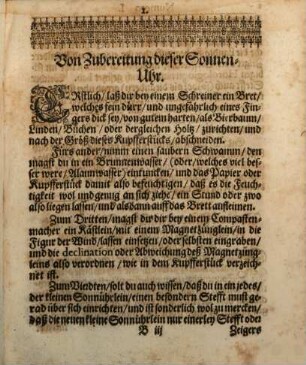 2.
Von Zubereitung dieser Sonnen-
Uhr.
ERstlich/ laß dir bey einem Schreiner ein Bret/
welches fein dürr/ und ungefährlich eines Fin-
gers dick sey/ von gutem harten/ als Bierbaum/
Linden/ Büchen/ oder dergleichen Holtz/ zurichten/ und
nach der Größ dieses Kupfferstücks/ abschneiden.
Fürs ander/ nimm einen säubern Schwamm/ den
magst du in ein Brunnenwasser (oder/ welches viel bes-
ser were/ Alaunwasser) eintuncken/ und das Papier oder
Kupfferstück damit also befeuchtigen/ daß es die Feuch-
tigkeit wol und genug an sich ziehe/ ein Stund oder zwo
also liegen lassen/ und alsdann auff das Bret aufleimen.
Zum Dritten/ magst du dir bey einem Compasten-
macher ein Kästlein/ mit einem Magnetzünglein/ in die
Figur der Wind/ lassen einsetzen/ oder selbsten eingraben/
und die declination oder Abweichung deß Magnetzüng-
leins also verordnen/ wie in dem Kupfferstück verzeich-
net ist.
Zum Vierdten/ solt du auch wissen/ daß du in ein jedes/
der kleinen Sonnührlein/ einen besondern Stefft must ge-
rad über sich einrichten/ und ist sonderlich wol zu mercken/
daß die neuen kleine Sonnührlein nur einerley Stefft oder
B iij Zeigers